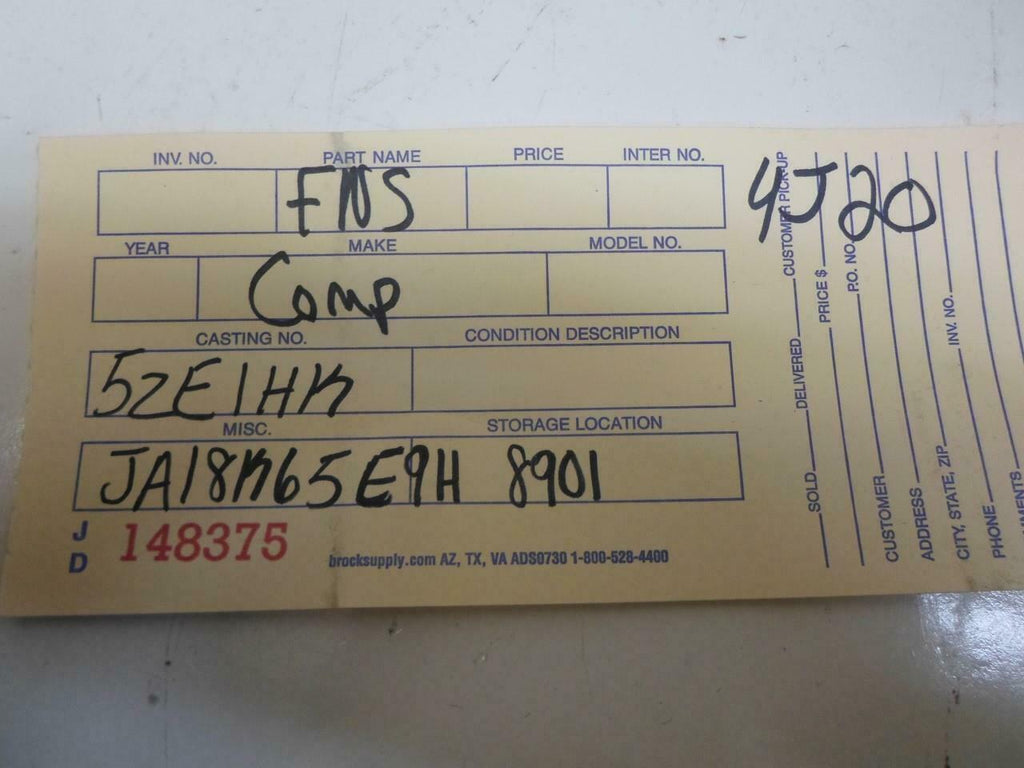 INV. NO. PART NAME PRICE INTER NO.
FNS
YEAR MAKE MODEL NO.
Comp
CASTING NO. CONDITION DESCRIPTION
5ZE1HK
MISC. STORAGE LOCATION
JA18K65E9H 8901
JD 148375
brocksupply.com AZ, TX, VA ADS0730 1-800-528-4400
4J20
SOLD DELIVERED CUSTOMER PICK-UP
PRICE $
P.O. NO.
CUSTOMER
ADDRESS
CITY, STATE, ZIP INV. NO.
PHONE